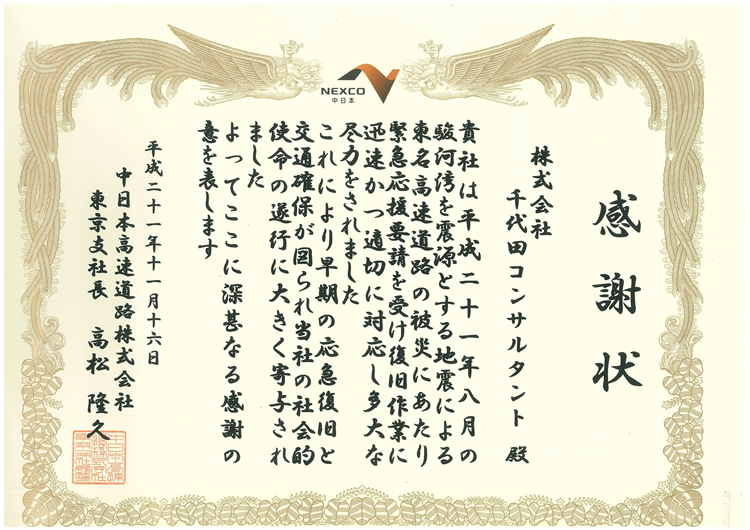 NEXCO
中日本
感謝状
株式会社
千代田コンサルタント 殿
貴社は平成二十一年八月の
駿河湾を震源とする地震による
東名高速道路の被災にあたり
緊急応援要請を受け復旧作業に
迅速かつ適切に対応し多大な
尽力をされました
これにより早期の応急復旧と
交通確保が図られ当社の社会的
使命の遂行に大きく寄与され
ました
よってここに深甚なる感謝の
意を表します
平成二十一年十一月十六日
中日本高速道路株式会社
東京支社長 高松隆久